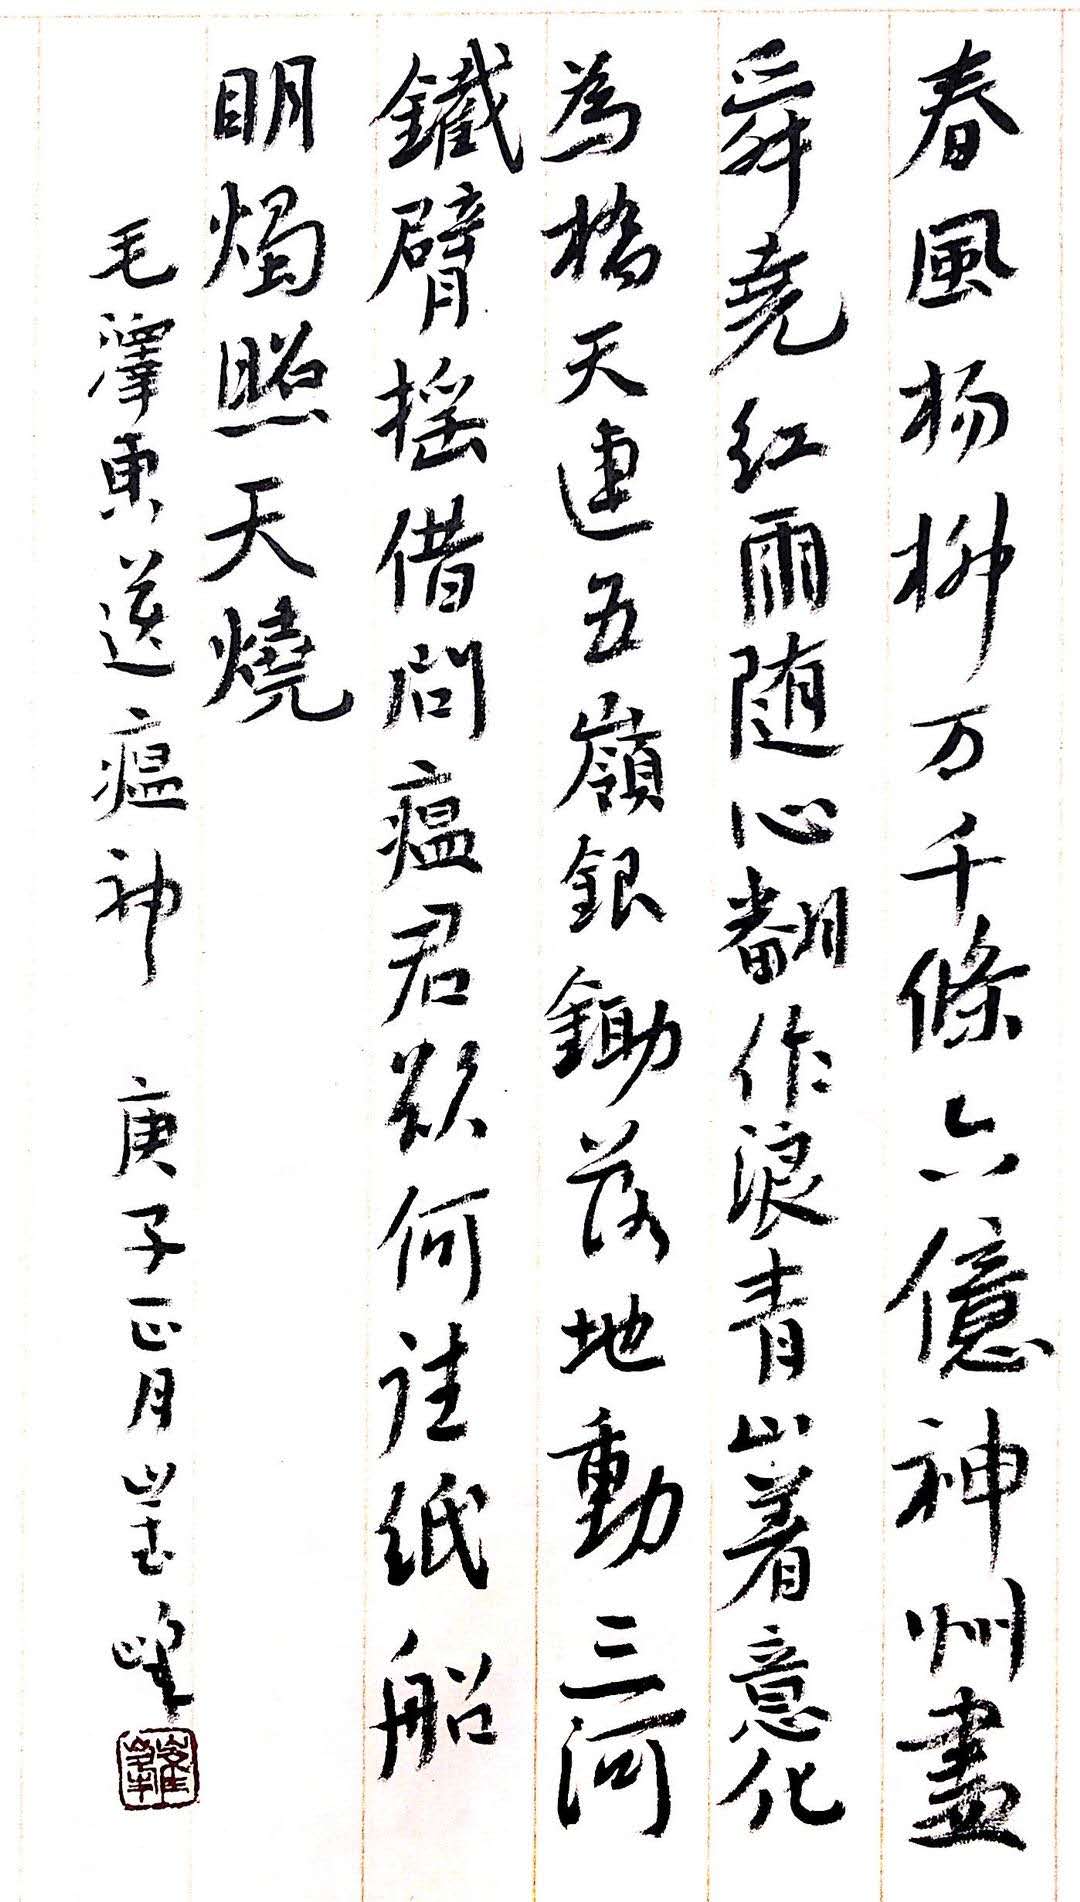 春風杨柳万千條六億神州盡
舜堯红雨随心翻作浪青山着意化
為橋天連五嶺銀鋤落地動三河
鐵臂摇借问瘟君欲何往纸船
明燭照天燒
毛澤東送瘟神 庚子正月 峰